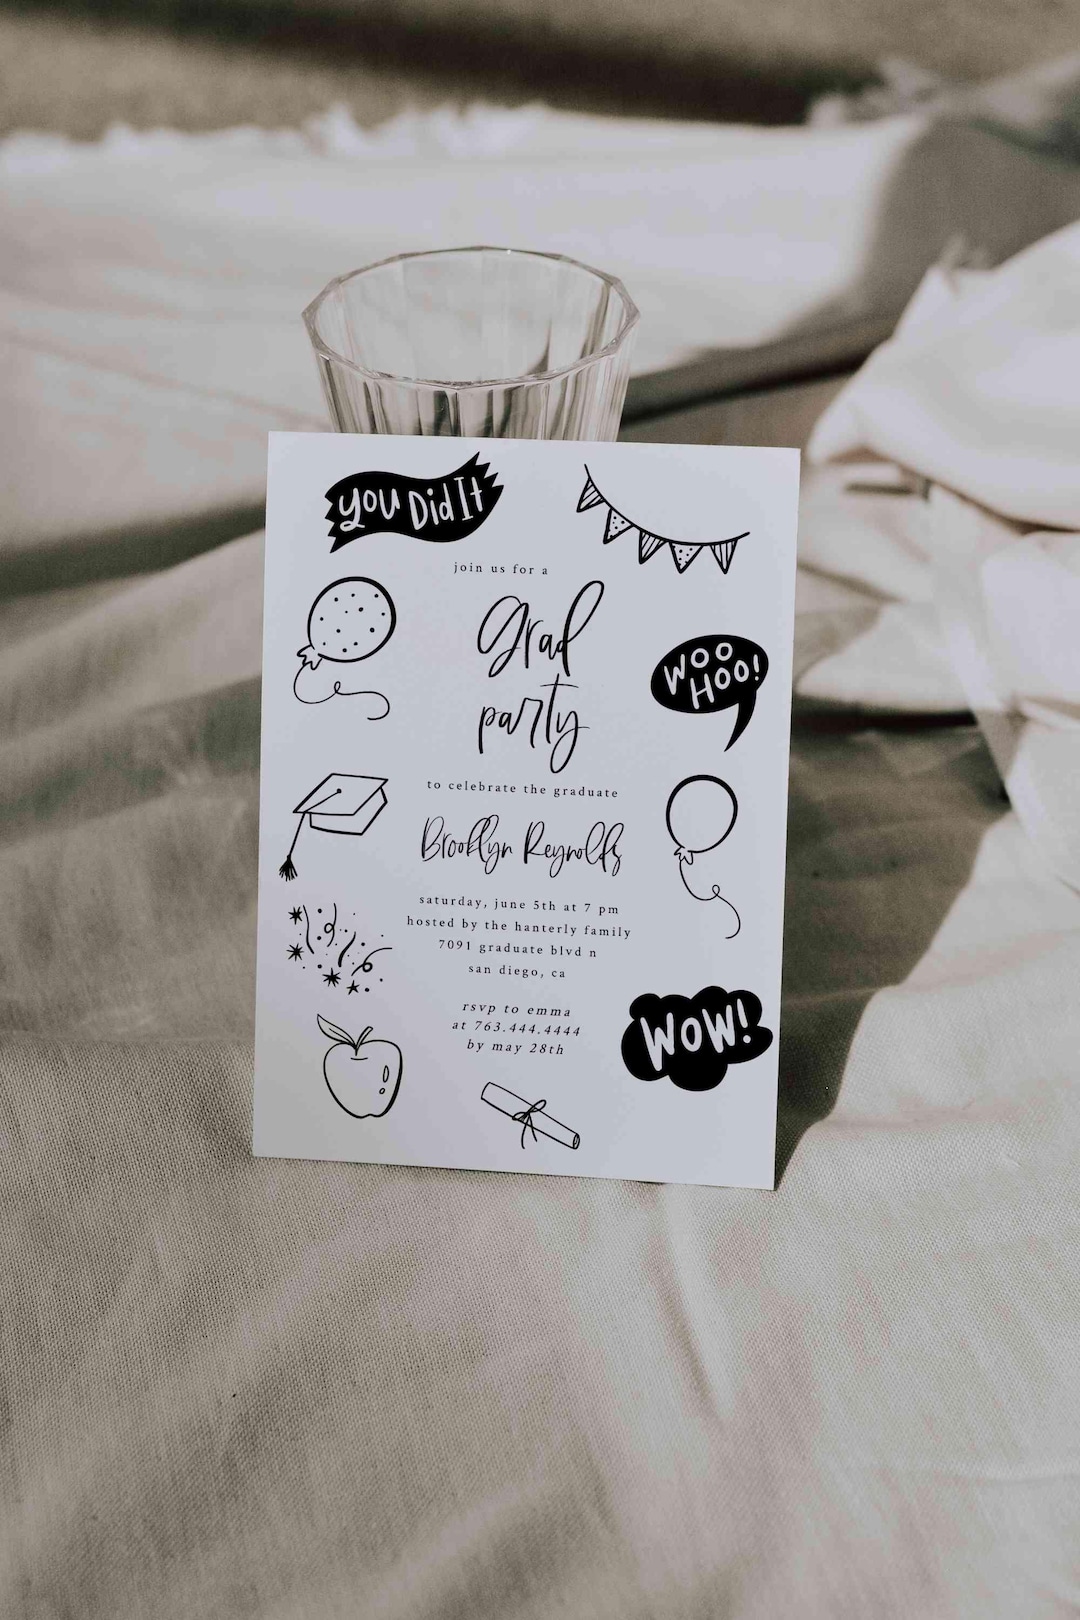 you Did It
join us for a
Grad
party
WOO
HOO!
to celebrate the graduate
Brooklyn Reynolds
saturday, june 5th at 7 pm
hosted by the hanterly family
7091 graduate blvd n
san diego, ca
rsvp to emma
at 763.444.4444
by may 28th
WOW!